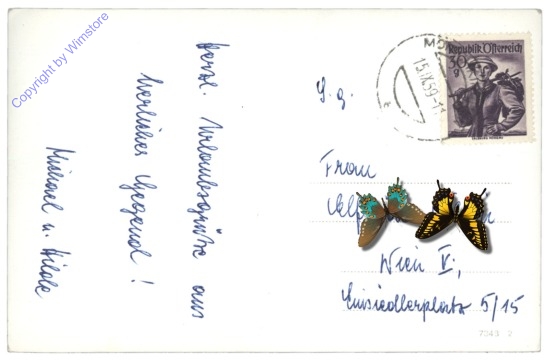 Copyright by Wimstore
Herzl. Urlaubsgrüße aus
herrlicher Gegend!
Michael u. Hilde
Republik Österreich
30 g
15.IX.59-11
S. g.
Frau
Wien V.,
Einsiedlerplatz 5/15
7343 2